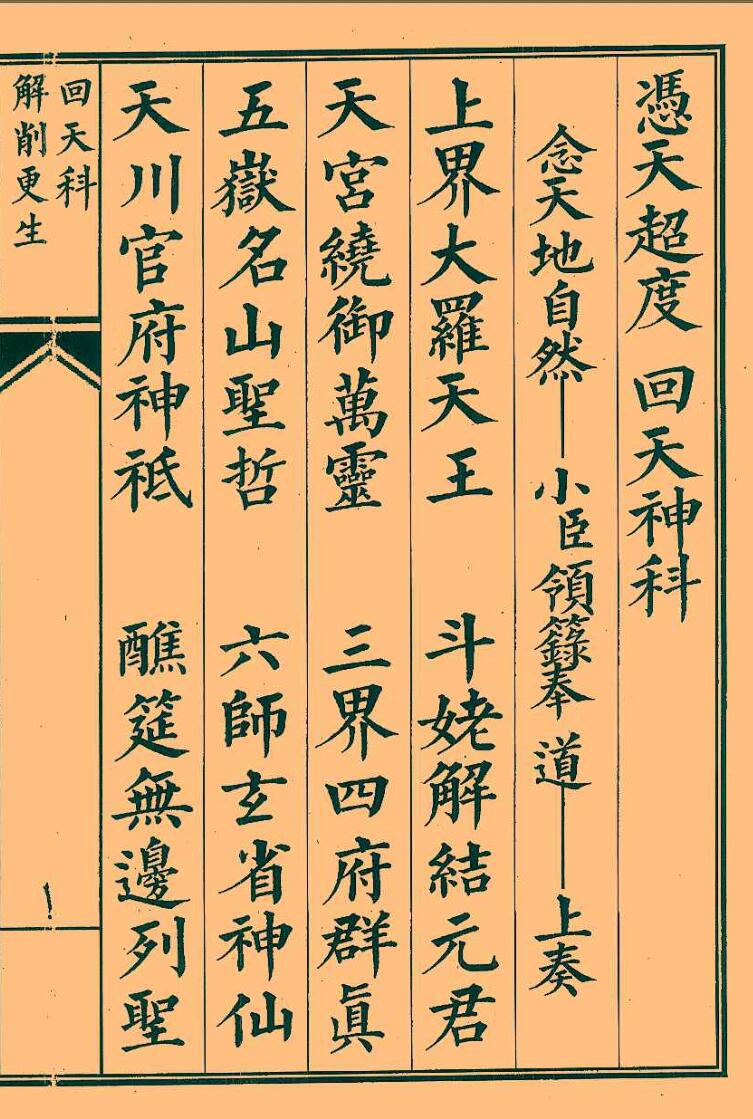 憑天超度 回天神科
念天地自然— 小臣領籙奉 道— 上奏
上界大羅天王 斗姥解結元君
天宮繞御萬靈 三界四府群眞
五嶽名山聖哲 六師玄省神仙
天川官府神祇 醮筵無邊列聖
回天科
解削更生